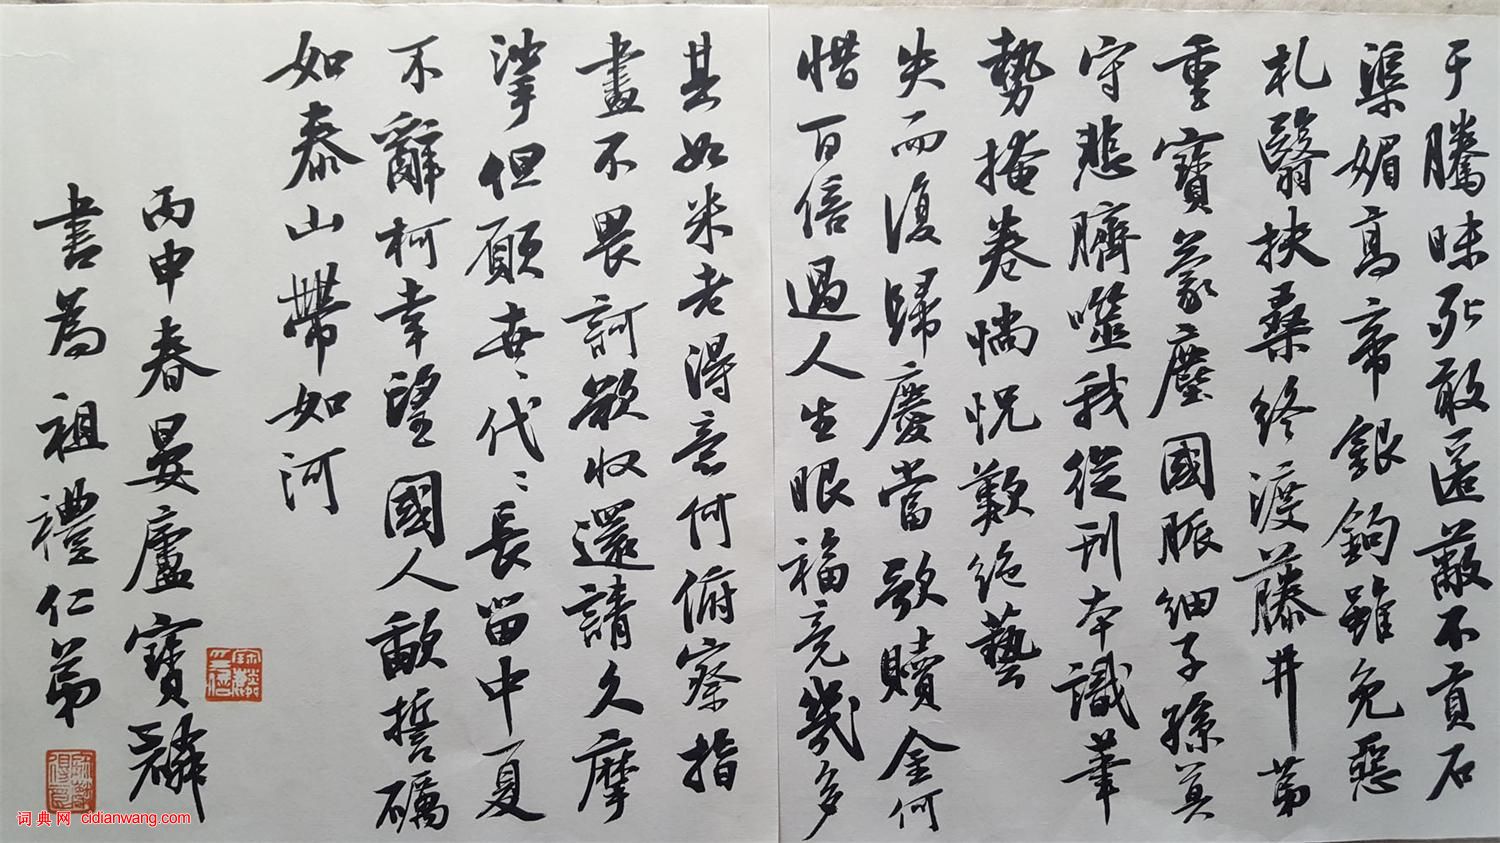 于騰昧死敢匿蔽不貢石
渠媚高帝銀鉤雖免惡
札翳扶桑終渡藤井第
重寶蒙塵國脈細子孫莫
守悲臍噬我從刊本識筆
勢掩卷惝怳歎絕藝
失而復歸慶當歌贖金何
惜百倍過人生眼福竟幾多
其如米老得意何俯察指
畫不畏訶欲收還請久摩
挲但願世〻代〻長留中夏
不辭柯幸望國人歃誓礪
如泰山帶如河
丙申春晏廬寶麟
書為祖禮仁弟
词典网 cidianwang.com